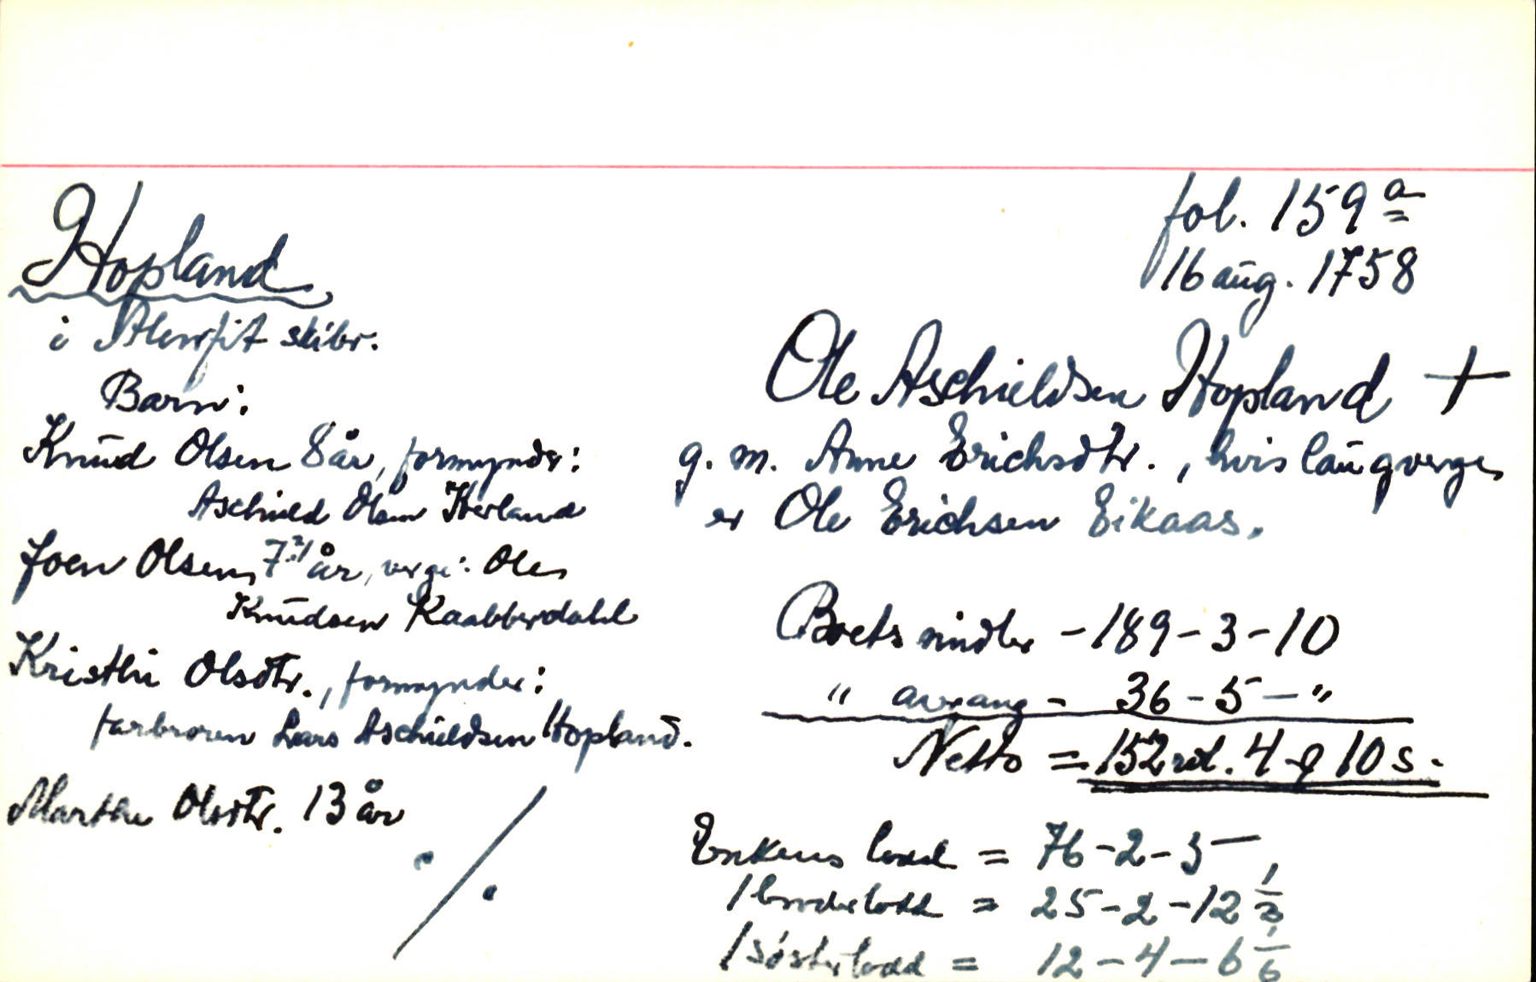 Hopland
i Alenfit skibr.
Barn:
Knud Olsen 8 år, formynder:
Aschield Olsen
Joen Olsen, 7 år, verge: Ole
Knudsen Kaabberdahl
Kristhi Olsdtr., formynder:
farbroren Lars Aschieldsen Hopland.
Marthe Olsdtr. 13 år
./.
fol. 159 a
16 aug. 1758
Ole Aschieldsen Hopland +
g. m. Anne Erichsdtr., hvis laugverge
er Ole Erichsen Eikaas.
Boets midler - 189-3-10
" avgang - 36-5-"
Netto = 152 rd. 4 10 s.
Enkens lodd = 76-2-5
1 broderlodd = 25-2-12 1/3
1 søsterlodd = 12-4-6 1/6